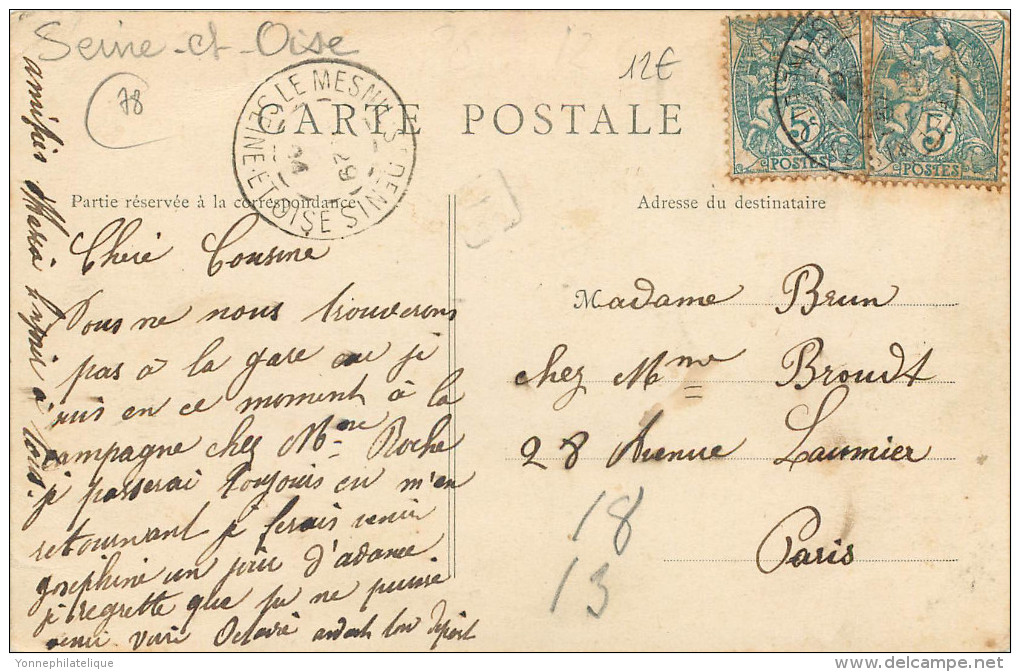 Seine-et-Oise
78
12€
CARTE POSTALE
LE MESNIL S! DENIS
SEINE-ET-OISE
5c
POSTES
5c
POSTES
Partie réservée à la correspondance
Adresse du destinataire
Chère Cousine
Vous ne nous trouverons
pas à la gare car je
suis en ce moment à la
campagne chez Mme Roche
je passerai toujours en m'en
retournant je ferais venir
Josephine un jour d'avance
je regrette que tu ne puisse
venir voir Octavie avant ton départ
amitiés
à tous.
Madame Brun
chez Mme Broudt
28 Avenue Laumier
Paris
18
13
Yonnephilatelique
www.delcampe.net